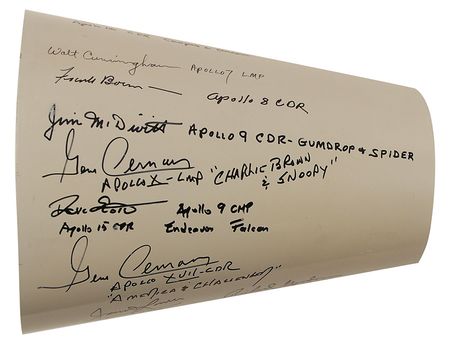 Walt Cunningham APOLLO 7 LMP
Frank Borman
Apollo 8 CDR
Jim McDivitt APOLLO 9 CDR - GUMDROP & SPIDER
Gene Cernan
APOLLO X - LMP "CHARLIE BROWN
& SNOOPY"
Dave Scott Apollo 9 CMP
Apollo 15 CDR Endeavor Falcon
Gene Cernan
APOLLO XVII - CDR
"AMERICA & CHALLENGER"